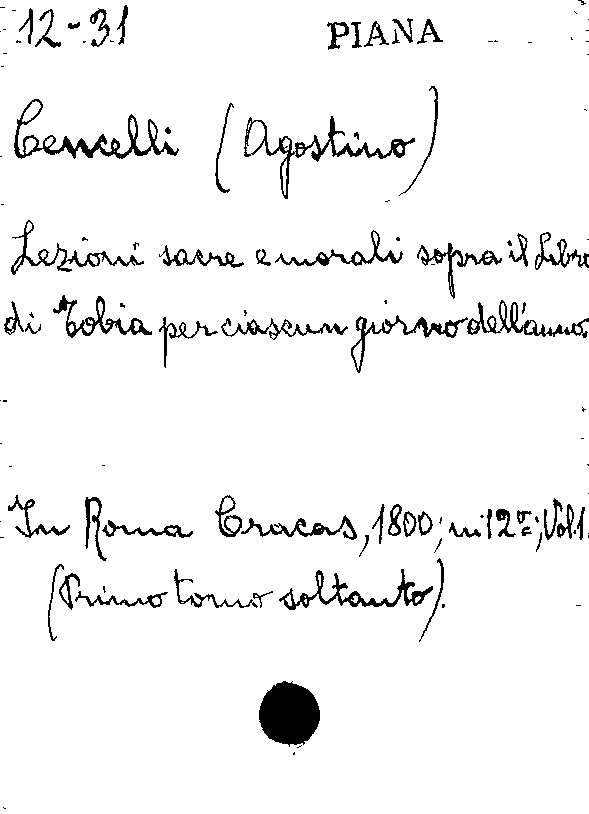 12-31 PIANA
Cencelli (Agostino)
Lezioni sacre e morali sopra il Libro
di Tobia per ciascun giorno dell'anno.
In Roma Cracas, 1800; in 12º; Vol. 1
(Primo tomo soltanto).